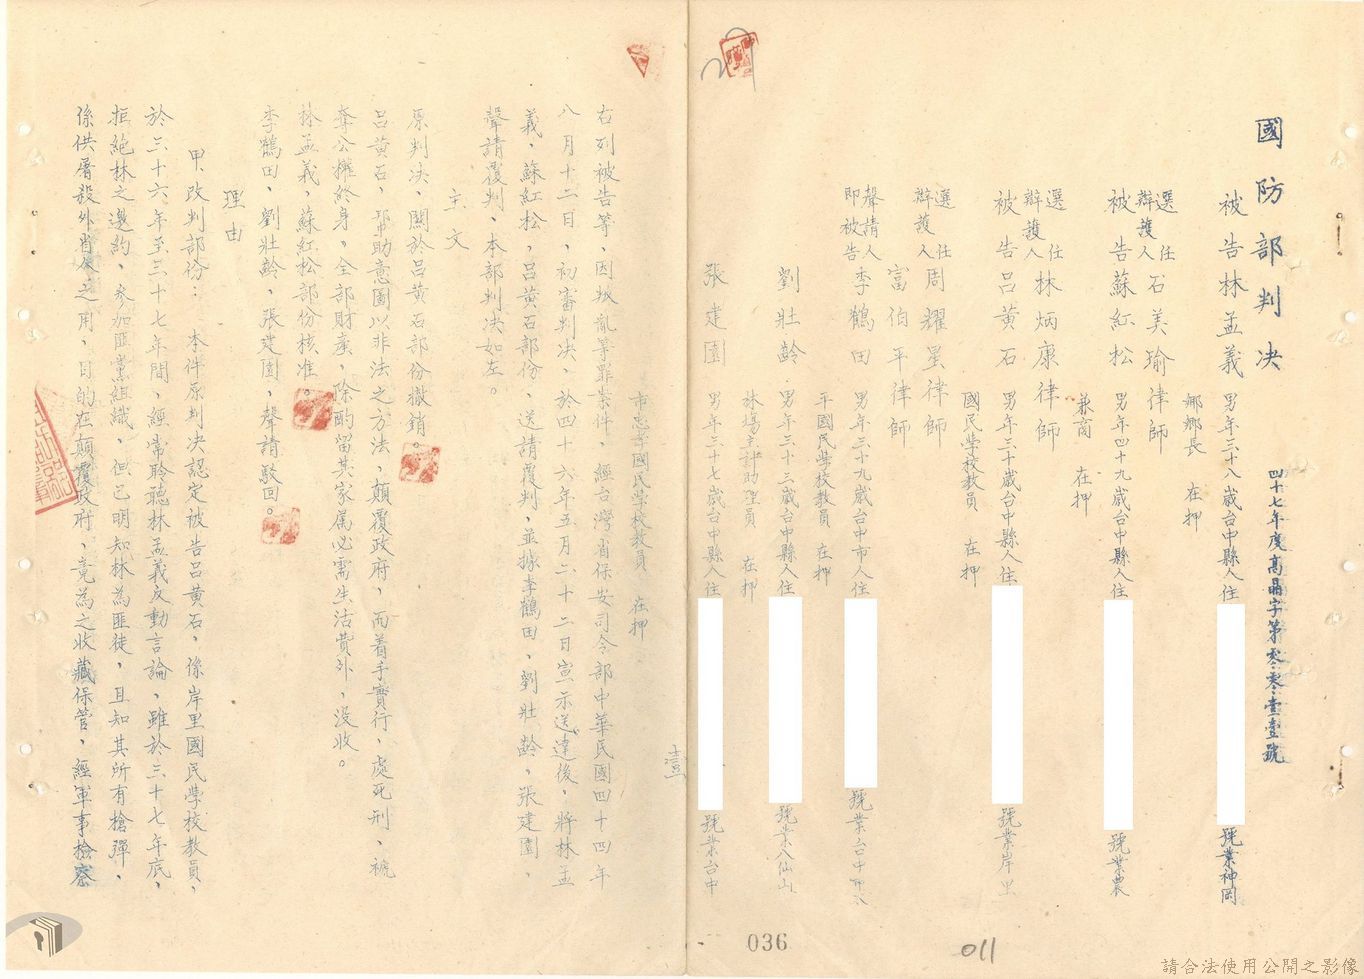 國防部判決
四十七年度高晶字第零零壹壹號
被告林孟義 男年三十八歲台中縣人住 號業神岡
鄉鄉長 在押
選任辯護人石美瑜律師
被告蘇紅松 男年四十九歲台中縣人住 號業農
兼商 在押
選任辯護人林炳康律師
被告呂黃石 男年三十歲台中縣人住 號業岸里
國民學校教員 在押
選任辯護人周耀星律師
富伯平律師
聲請人即被告李鶴田 男年三十九歲台中市人住 號業台中市
平國民學校教員 在押
劉壯齡 男年三十三歲台中縣人住 號業八仙山
林場主計助理員 在押
張建園 男年三十七歲台中縣人住 號業台中
036
011
壹
市忠孝國民學校教員 在押
右列被告等,因叛亂等罪案件,經台灣省保安司令部中華民國四十四年
八月十二日,初審判決,於四十六年五月二十二日宣示送達後,將林孟
義,蘇紅松,呂黃石部份,送請覆判,並據李鶴田,劉壯齡,張建園,
聲請覆判,本部判決如左。
主文
原判決,關於呂黃石部份撤銷。
呂黃石,幫助意圖以非法之方法,顛覆政府,而着手實行,處死刑,褫
奪公權終身,全部財產,除酌留其家屬必需生活費外,沒收。
林孟義,蘇紅松部份核准。
李鶴田,劉壯齡,張建園,聲請駁回。
理由
甲、改判部份: 本件原判決認定被告呂黃石,係岸里國民學校教員,
於三十六年至三十七年間,經常聆聽林孟義反動言論,雖於三十七年底,
拒絕林之邀約,參加匪黨組織,但已明知林為匪徒,且知其所有槍彈,
係供屠殺外省人之用,目的在顛覆政府,竟為之收藏保管,經軍事檢察
請合法使用公開之影像